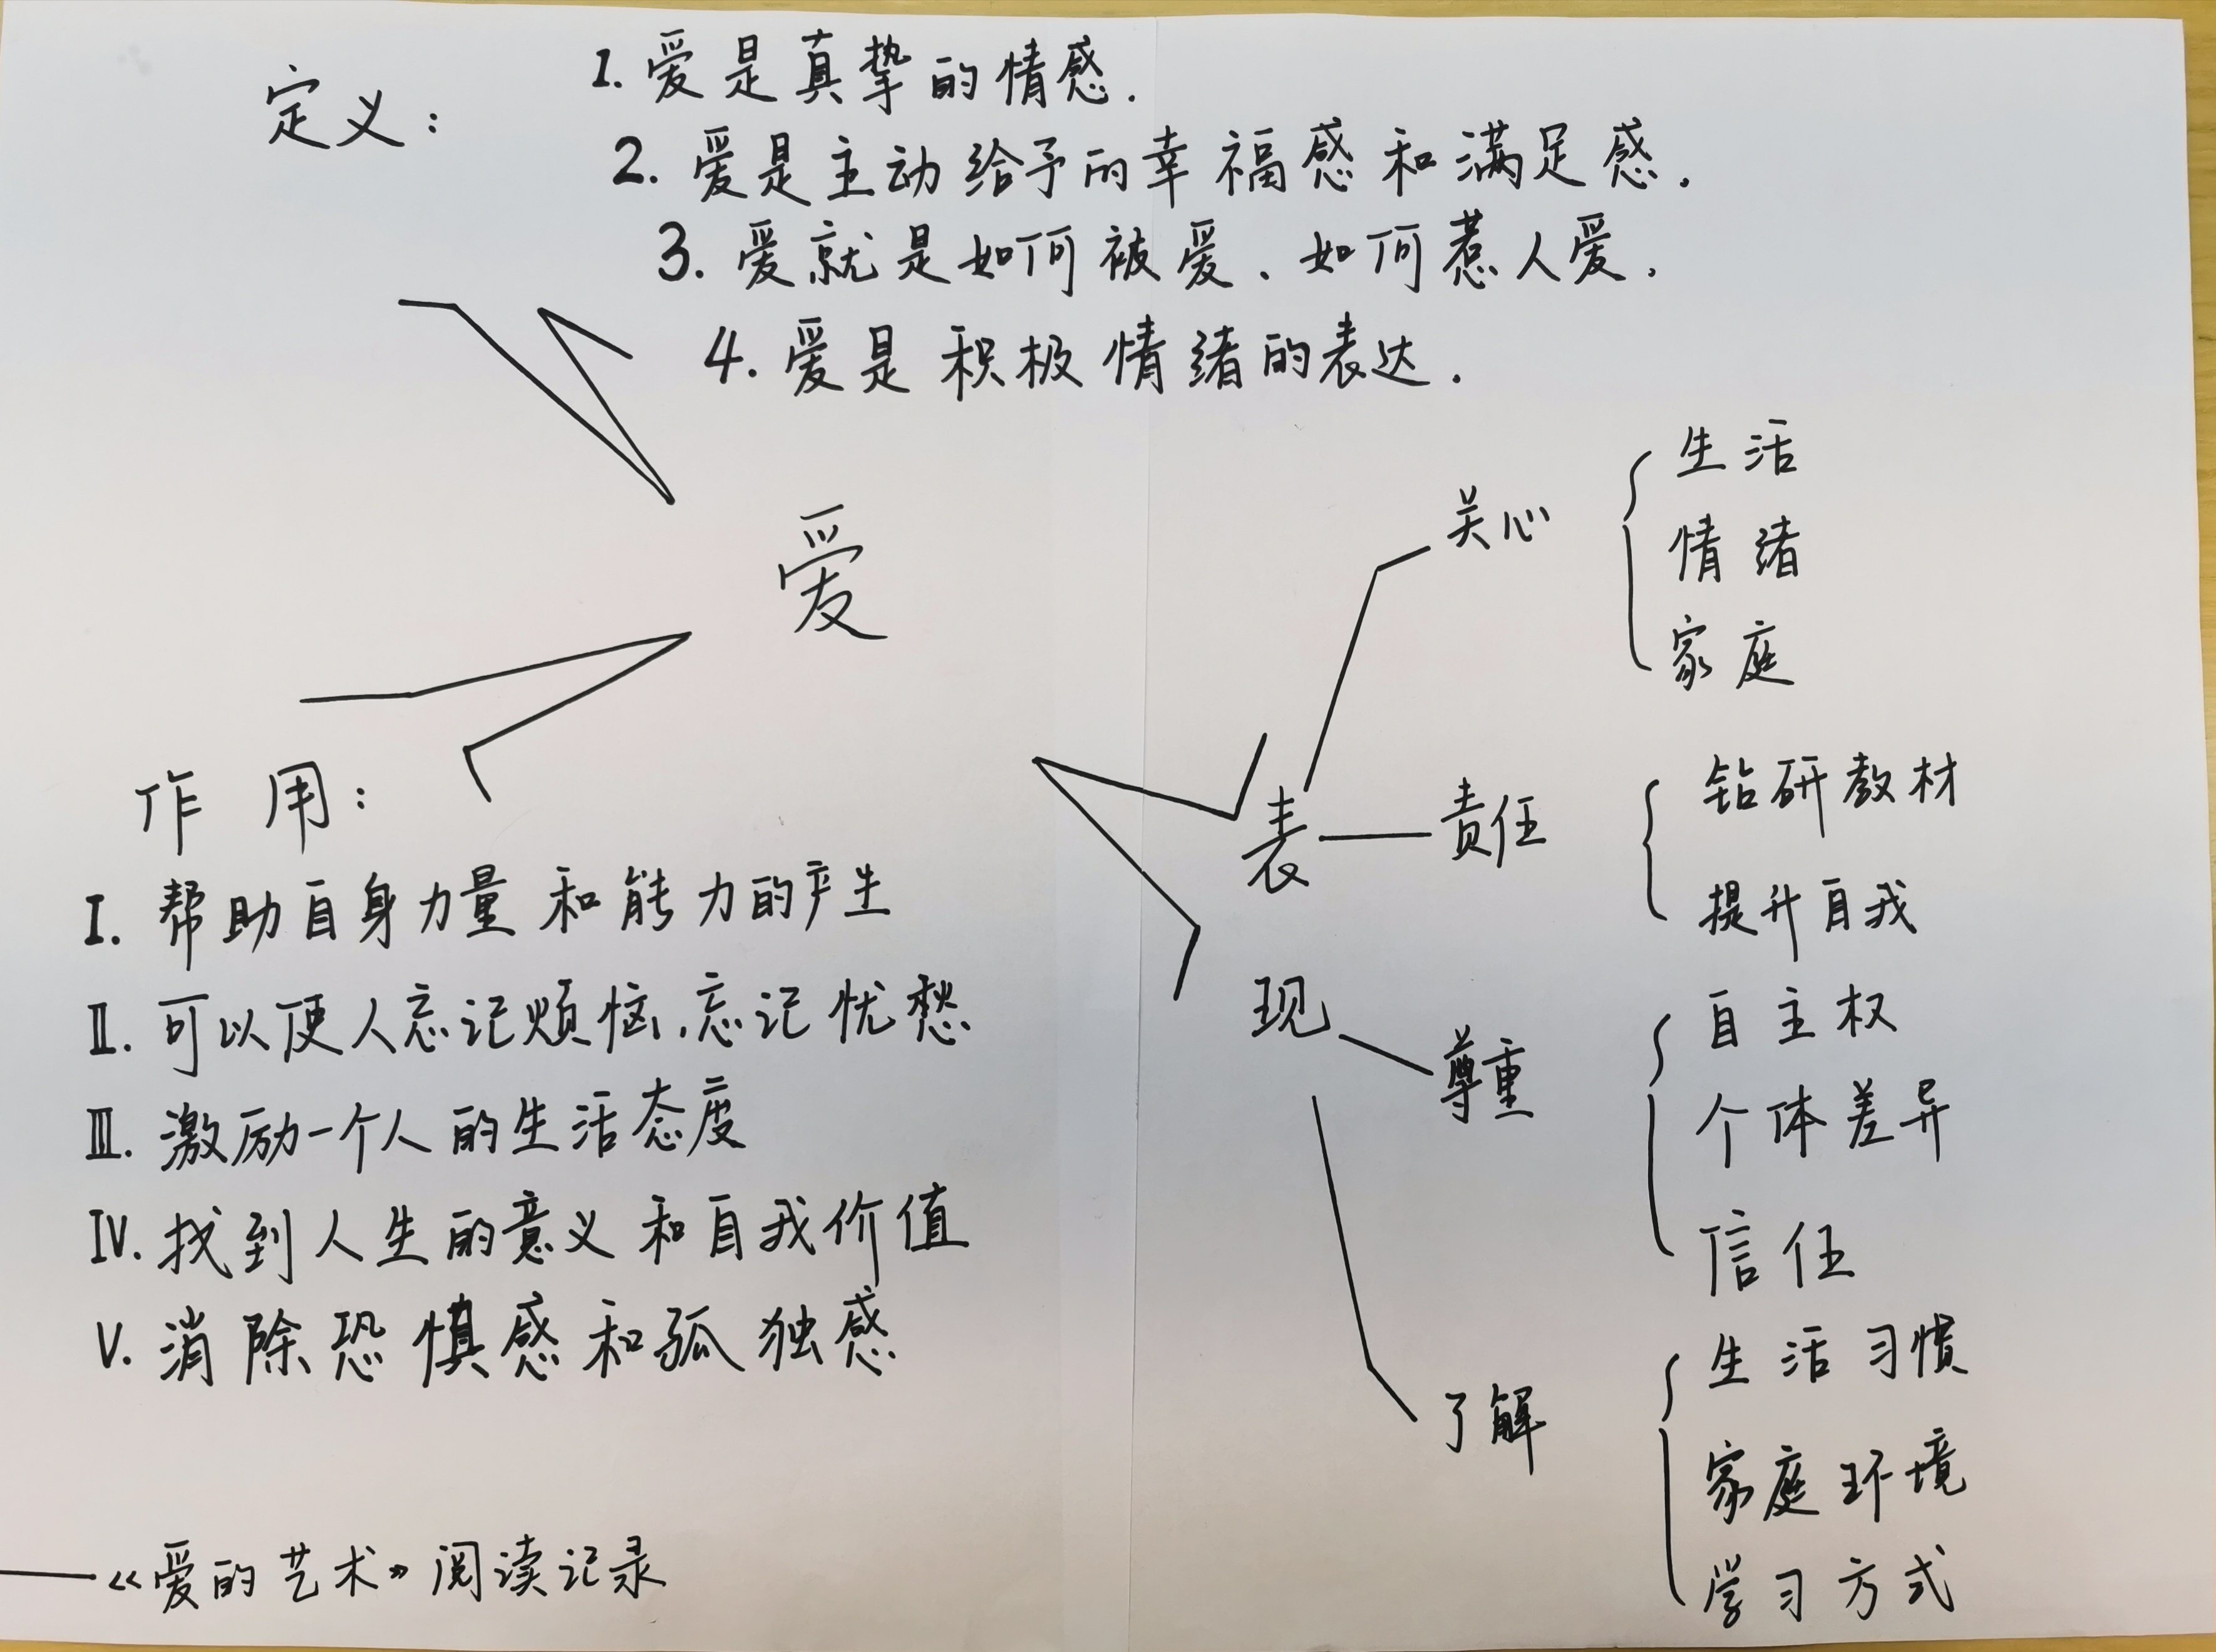 定义：
1. 爱是真挚的情感.
2. 爱是主动给予的幸福感和满足感.
3. 爱就是如何被爱、如何惹人爱.
4. 爱是积极情绪的表达.
爱
作用：
I. 帮助自身力量和能力的产生
II. 可以使人忘记烦恼,忘记忧愁
III. 激励一个人的生活态度
IV. 找到人生的意义和自我价值
V. 消除恐惧感和孤独感
表现
关心
生活
情绪
家庭
责任
钻研教材
提升自我
尊重
自主权
个体差异
信任
了解
生活习惯
家庭环境
学习方式
——《爱的艺术》阅读记录